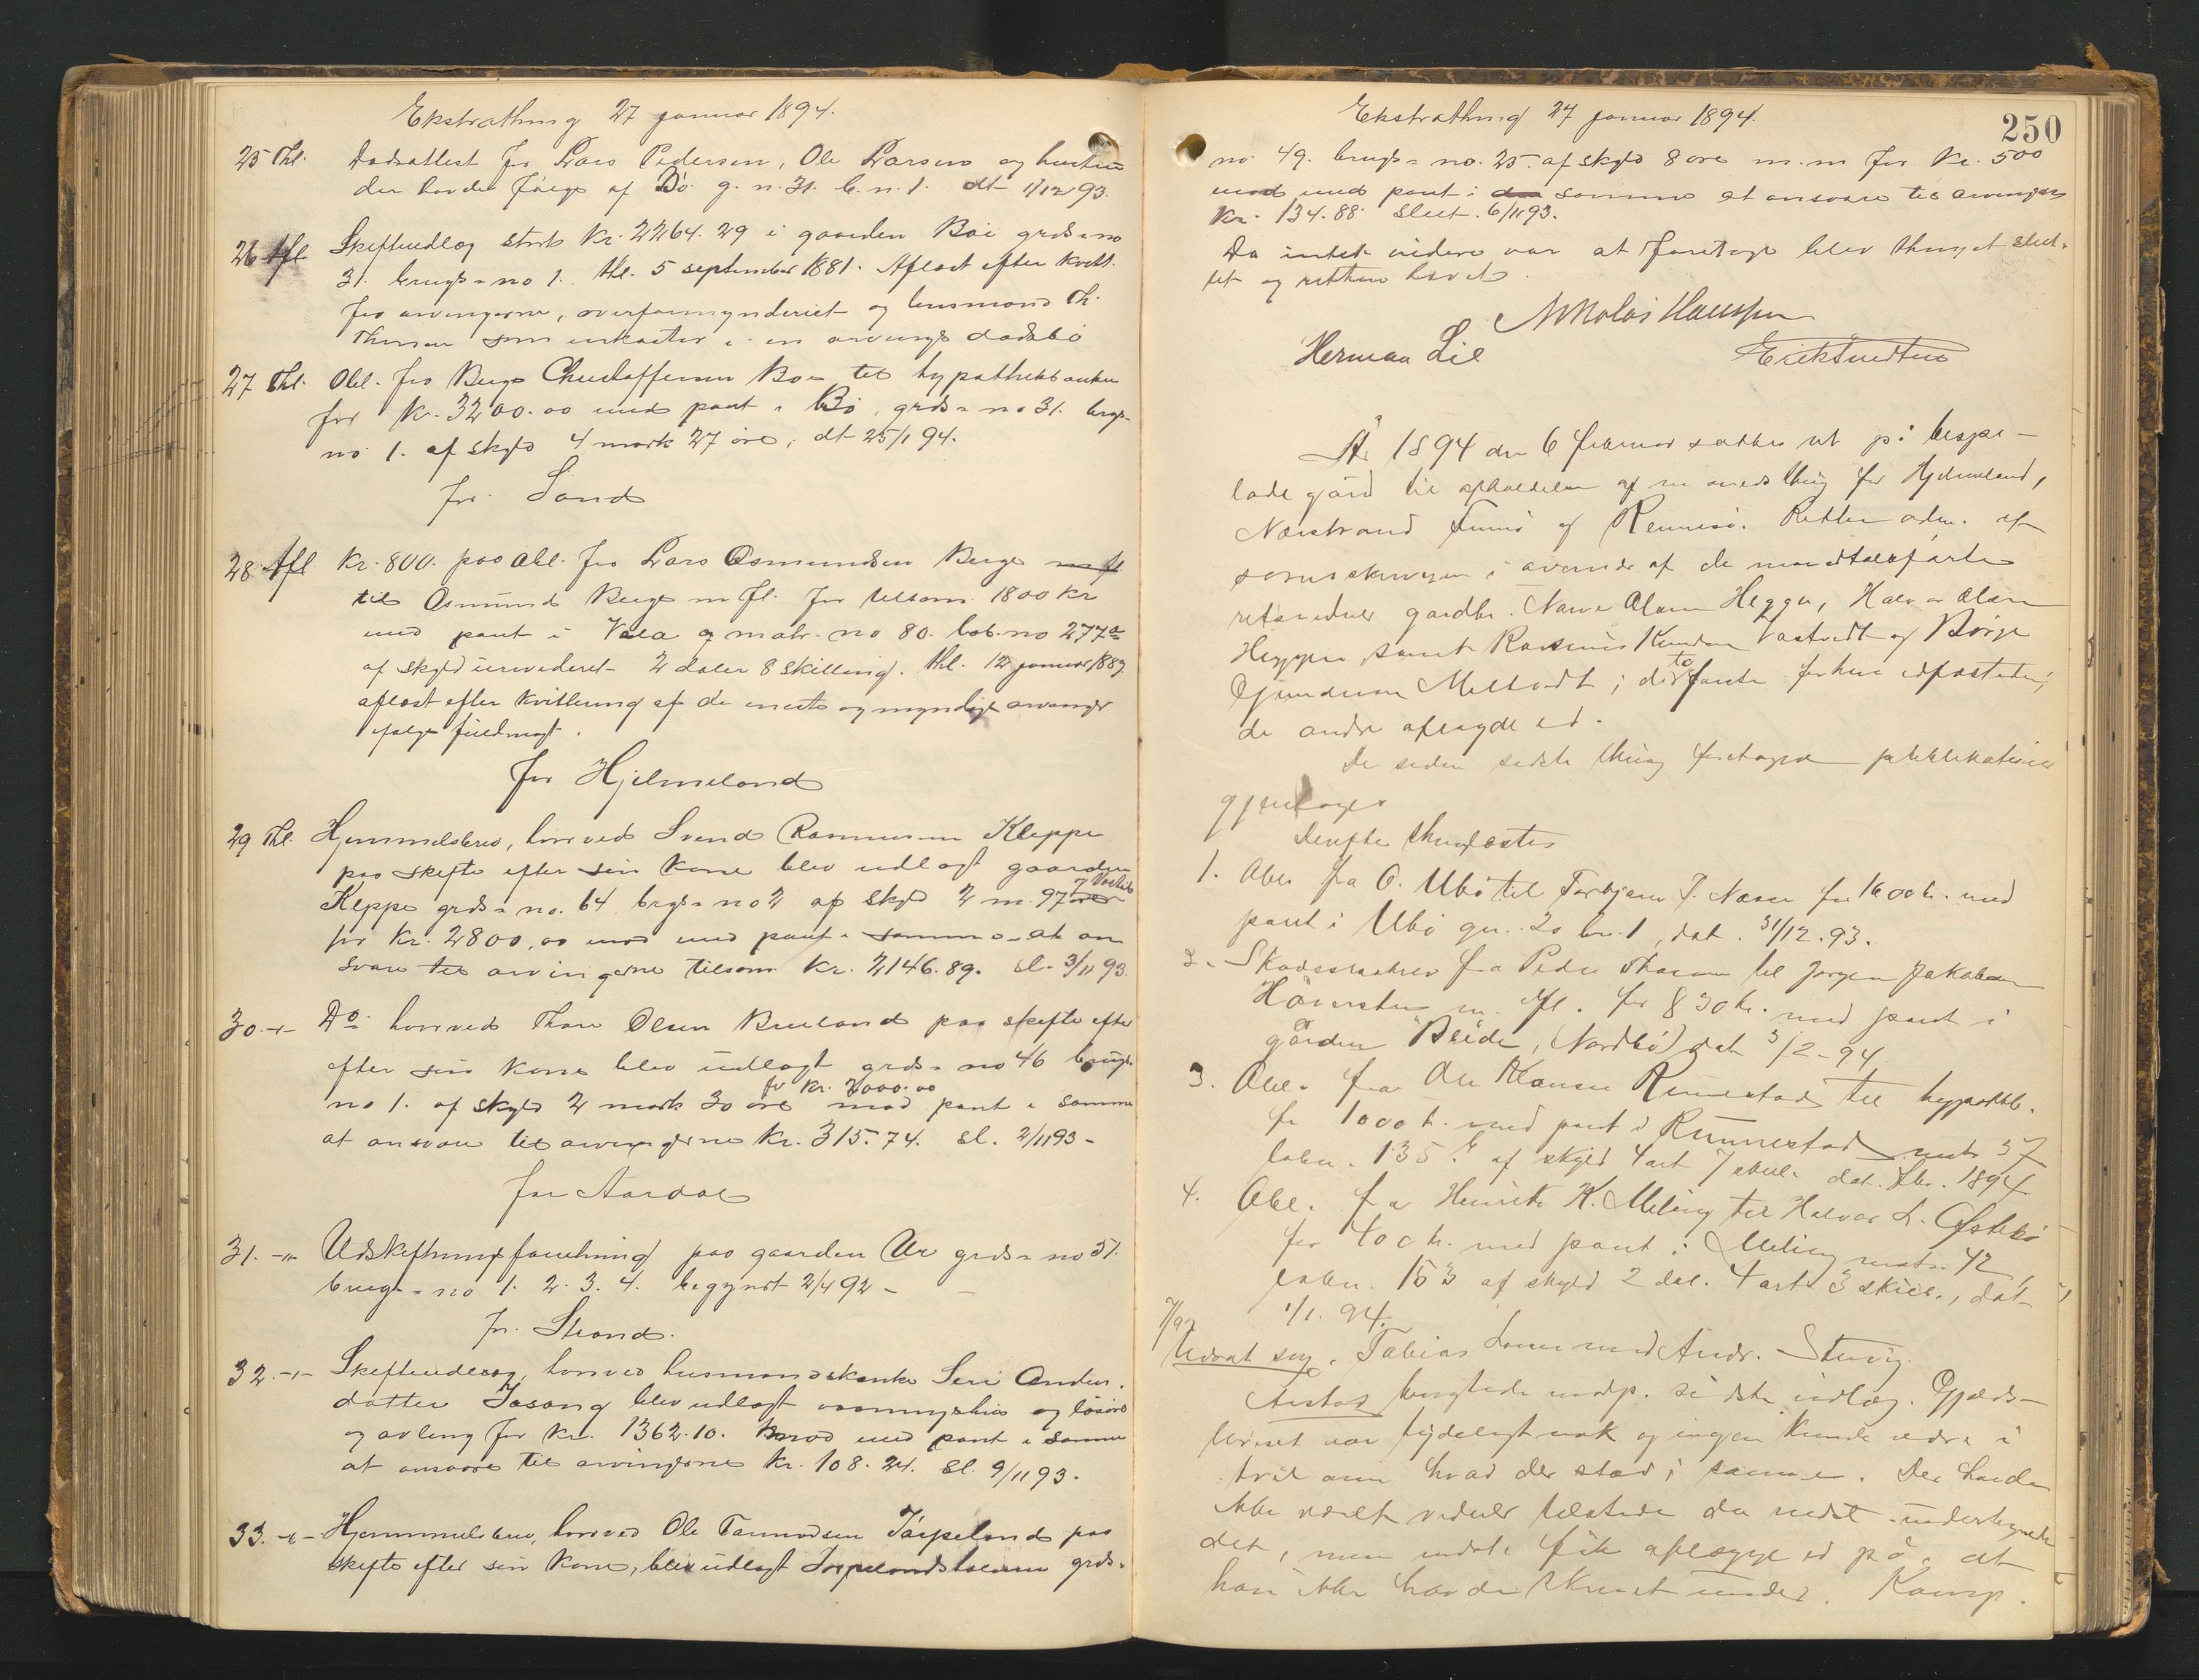 Ekstrathing 27 januar 1894.
25 Thl. Dødsattest for Lars Pedersen, Ole Larsen og hustru
der havde fæige af Bö g. n. 31. b. n. 1. dt 1/12 93.
26 Afl. Skifteudlæg stort Kr. 2264.29 i gaarden Bøe grds=no
31. brugs=no 1. thl. 5 september 1881. Aflæst efter kvitt.
fra arvingerne, overformynderiet og lensmand Th.
som i en arvings dødsbo
27 Thl. Obl. fra Berge Christoffersen Bøe til hypothekbanken
for Kr. 3200.00 med pant i Bö, grds=no 31. brugs-
no 1. af skyld 4 mark 27 øre, dt 25/1 94.
for Sand
28 Afl Kr. 800. paa Obl. fra Lars Osmundsen Berge m fl
til Osmund Berge m fl. for tilsam. 1800 Kr
med pant i matr. no 80. løb. no 277a
af skyld urevideret 2 daler 8 skilling. thl. 12 januar 1889
aflæst efter kvittering af de eneste og myndige arvinger
ifølge fuldmagt.
for Hjelmeland
29 Thl. Hjemmelsbrev, hvorved Svend Rasmussen Kleppe
paa skifte efter sin kone blev udlagt gaarden
Kleppe grds=no. 64 brgs=no 2 af skyld 2 m. 97 øre
for Kr. 2800,00 mod med pant i samme at an
svare til arvingerne tilsam. Kr. 2146.89. sl. 3/11 93.
30.-"- Do. hvorved Thore Olsen Bruland paa skifte efter
efter sin kone blev udlagt grds=no 46 brugs-
for Kr. 2000.00
no 1. af skyld 2 mark 30 øre mod pant i samme
at ansvare til arvingerne Kr. 315.74. sl. 2/11 93-
for Aardal
31.-"- Udskiftningsforretning paa gaarden Ur grds=no 51.
brugs=no 1. 2. 3. 4. begyndt 2/4 92-
for Strand.
32.-"- Skifteudlæg, hvorved husmandsenke Seri Anders.
datter Tasang blev udlagt og løsøre
og avling for Kr. 1362.10. mod med pant i samme
at ansvare til arvingerne Kr. 108.24. sl. 9/11 93.
33.-"- Hjemmelsbrev, hvorved Ole Tarmodsen Tøipeland paa
skifte efter sin kone, blev udlagt grds=
Ekstrathing 27 januar 1894.
250
no. 49. brugs=no. 25. af skyld 8 øre m.m for Kr. 500
mod med pant i den samme at ansvare til arvingerne
Kr. 134.88. Slut. 6/11 93.
Da intet videre var at foretage blev thinget slut-
tet og retten hævet.
Nikolai Hanssen
Herman Lie
År 1894 den 6 februar sattes ret på bispe-
ladegård til afholdelse af månedsthing for Hjelmeland,
Nærstrand Finnö og Rennesö. Retten adm. af
sorenskriveren i overvær af de neden
retsvidner gaardbr. Narve Olsen Heggen, Halvor Olsen
Heggen samt Rasmus Knudsen Vastvedt og Börge
Gjundersen Meltvedt; de to første forhen edfæstede;
de andre aflagde ed.
De siden sidste thing foretagne publikationer
gjentoges
Derefter thinglæstes
1. Obl. fra O. Ubö til Torbjørn T. Næsse for 1600 kr. med
pant i Ubö gn. 20 bn. 1, dat. 31/12.93.
2. Skadesløsbrev fra Peder Thorsen til Jørgen Jakobsen
m. fl. for 830 kr. med pant i
gården "Bleide", (Nordbö) dat 3/2-94
3. Obl. fra Ole Klausen Rennestad til hypothb.
for 1000 kr. med pant i Runnestad mat. 37
løben. 135 b af skyld 4 ort 7 skill. dat. 1894
4. Obl. fra Henrik K. Meling til Halvor L. Østebö
for 400 kr. med pant i Meling mat. 42,
løben. 153 af skyld 2 dal. 4 ort 3 skill., dat.
1/1.94.
Udsat sag. Tobias med Andr. Stuvig.
Aarstad benegtede modp. sidste indlæg. Gjælds-
beviset var tydeligt nok og ingen kunde være i
tvil om hvad der stod i samme. Der havde
ikke været vidner tilstede da indst. undertegnede
det, men indst. fik aflægge ed på, at
han ikke havde skrevet under. Kamp.